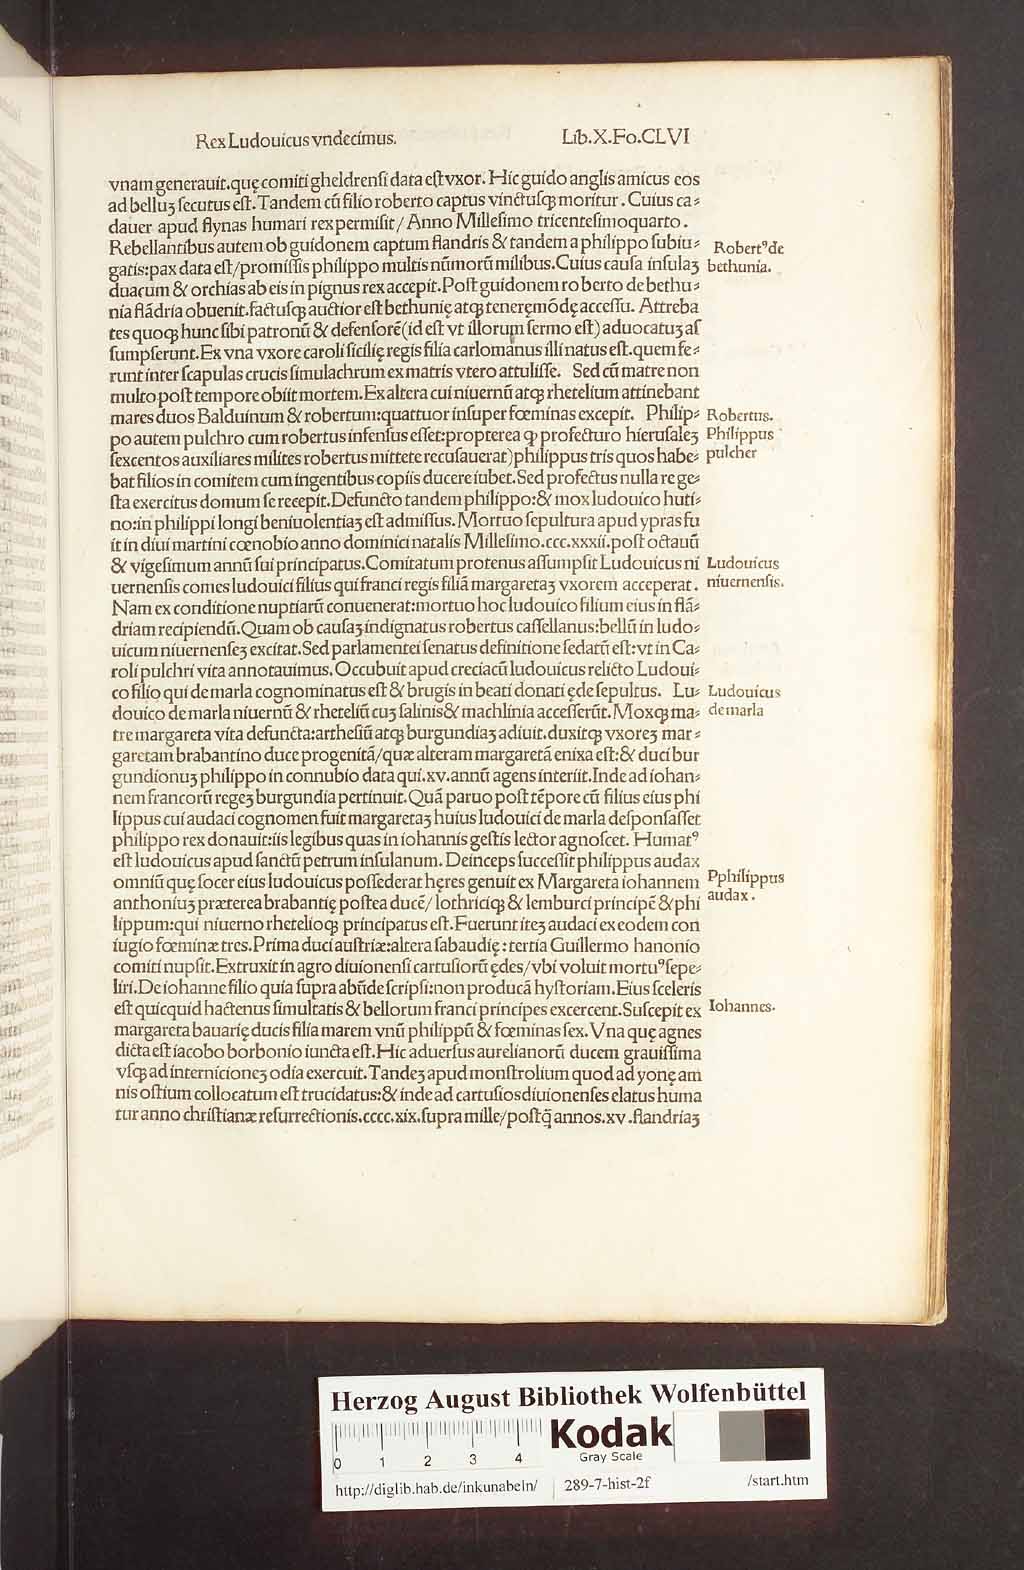 Rex Ludouicus vndecimus. Lib.X.Fo.CLVI
vnam generauit.quę comiti gheldrensi data est vxor. Hic guido anglis amicus eos
ad belluȝ secutus est. Tandem cũ filio roberto captus vinctusqȝ moritur. Cuius ca⸗
dauer apud flynas humari rex permisit/ Anno Millesimo tricentesimoquarto.
Rebellantibus autem ob guidonem captum flandris & tandem a philippo subiu⸗
gatis:pax data est/promissis philippo multis nũmorũ milibus.Cuius causa insulaȝ
duacum & orchias ab eis in pignus rex accepit. Post guidonem roberto de bethu⸗
nia flãdria obuenit.factusqȝ auctior est bethunię atqȝ teneręmõdę accessu. Attreba
tes quoqȝ hunc sibi patronũ & defensorẽ(id est vt illorum sermo est) aduocatuȝ as
sumpserunt.Ex vna vxore caroli sicilię regis filia carlomanus illi natus est.quem fe⸗
runt inter scapulas crucis simulachrum ex matris vtero attulisse. Sed cũ matre non
multo post tempore obiit mortem. Ex altera cui niuernũ atqȝ rhetelium attinebant
mares duos Balduinum & robertum:quattuor insuper fœminas excepit. Philip⸗
po autem pulchro cum robertus infensus esset:propterea qȝ profecturo hierusaleȝ
sexcentos auxiliares milites robertus mittete recusauerat)philippus tris quos habe⸗
bat filios in comitem cum ingentibus copiis ducere iubet. Sed profectus nulla re ge⸗
sta exercitus domum se recepit.Defuncto tandem philippo:& mox ludouico huti⸗
no:in philippi longi beniuolentiaȝ est admissus. Mortuo sepultura apud ypras fu
it in diui martini cœnobio anno dominici natalis Millesimo.ccc.xxxii.post octauũ
& vigesimum annũ sui principatus.Comitatum protenus assumpsit Ludouicus ni
uernensis comes ludouici filius qui franci regis filiã margaretaȝ vxorem acceperat.
Nam ex conditione nuptiarũ conuenerat:mortuo hoc ludouico filium eius in flã⸗
driam recipiendũ.Quam ob causaȝ indignatus robertus cassellanus:bellũ in ludo⸗
uicum niuernenseȝ excitat. Sed parlamentei senatus definitione sedatũ est:vt in Ca⸗
roli pulchri vita annotauimus. Occubuit apud creciacũ ludouicus relicto Ludoui⸗
co filio qui de marla cognominatus est & brugis in beati donati ęde sepultus. Lu⸗
douico de marla niuernũ & rheteliũ cuȝ salinis & machlinia accesserũt. Moxqȝ ma⸗
tre margareta vita defuncta:arthesiũ atqȝ burgundiaȝ adiuit.duxitqȝ vxoreȝ mar⸗
garetam brabantino duce progenitã/quæ alteram margaretã enixa est:& duci bur
gundionuȝ philippo in connubio data qui.xv.annũ agens interiit.Inde ad iohan⸗
nem francorũ regeȝ burgundia pertinuit. Quã paruo post tẽpore cũ filius eius phi
lippus cui audaci cognomen fuit margaretaȝ huius ludouici de marla desponsasset
philippo rex donauit:iis legibus quas in iohannis gestis lector agnoscet. Humatꝰ
est ludouicus apud sanctũ petrum insulanum. Deinceps successit philippus audax
omniũ quę socer eius ludouicus possederat hęres genuit ex Margareta iohannem
anthoniuȝ præterea brabantię postea ducẽ/ lothriciqȝ & lemburci principẽ & phi
lippum:qui niuerno rhetelioqȝ principatus est. Fuerunt iteȝ audaci ex eodem con
iugio fœminæ tres.Prima duci austriæ:altera sabaudię:tertia Guillermo hanonio
comiti nupsit. Extruxit in agro diuionensi cartusiorũ ędes/vbi voluit mortuꝰ sepe⸗
liri.De iohanne filio quia supra abũde scripsi:non producã hystoriam. Eius sceleris
est quicquid hactenus simultatis & bellorum franci principes excercent.Suscepit ex
margareta bauarię ducis filia marem vnũ philippũ & fœminas sex. Vna quę agnes
dicta est iacobo borbonio iuncta est. Hic aduersus aurelianorũ ducem grauissima
vsqȝ ad internicioneȝ odia exercuit. Tandeȝ apud monstrolium quod ad yonę am
nis ostium collocatum est trucidatus:& inde ad cartusios diuionenses elatus huma
tur anno christianæ resurrectionis.cccc.xix.supra mille/postq̃ annos.xv.flandriaȝ
Robertꝰ de
bethunia.
Robertus.
Philippus
pulcher
Ludouicus
niuernensis.
Ludouicus
de marla
Pphilippus
audax.
Iohannes.
Herzog August Bibliothek Wolfenbüttel
Kodak
Gray Scale
0 1 2 3 4
http://diglib.hab.de/inkunabeln/ 289-7-hist-2f /start.htm